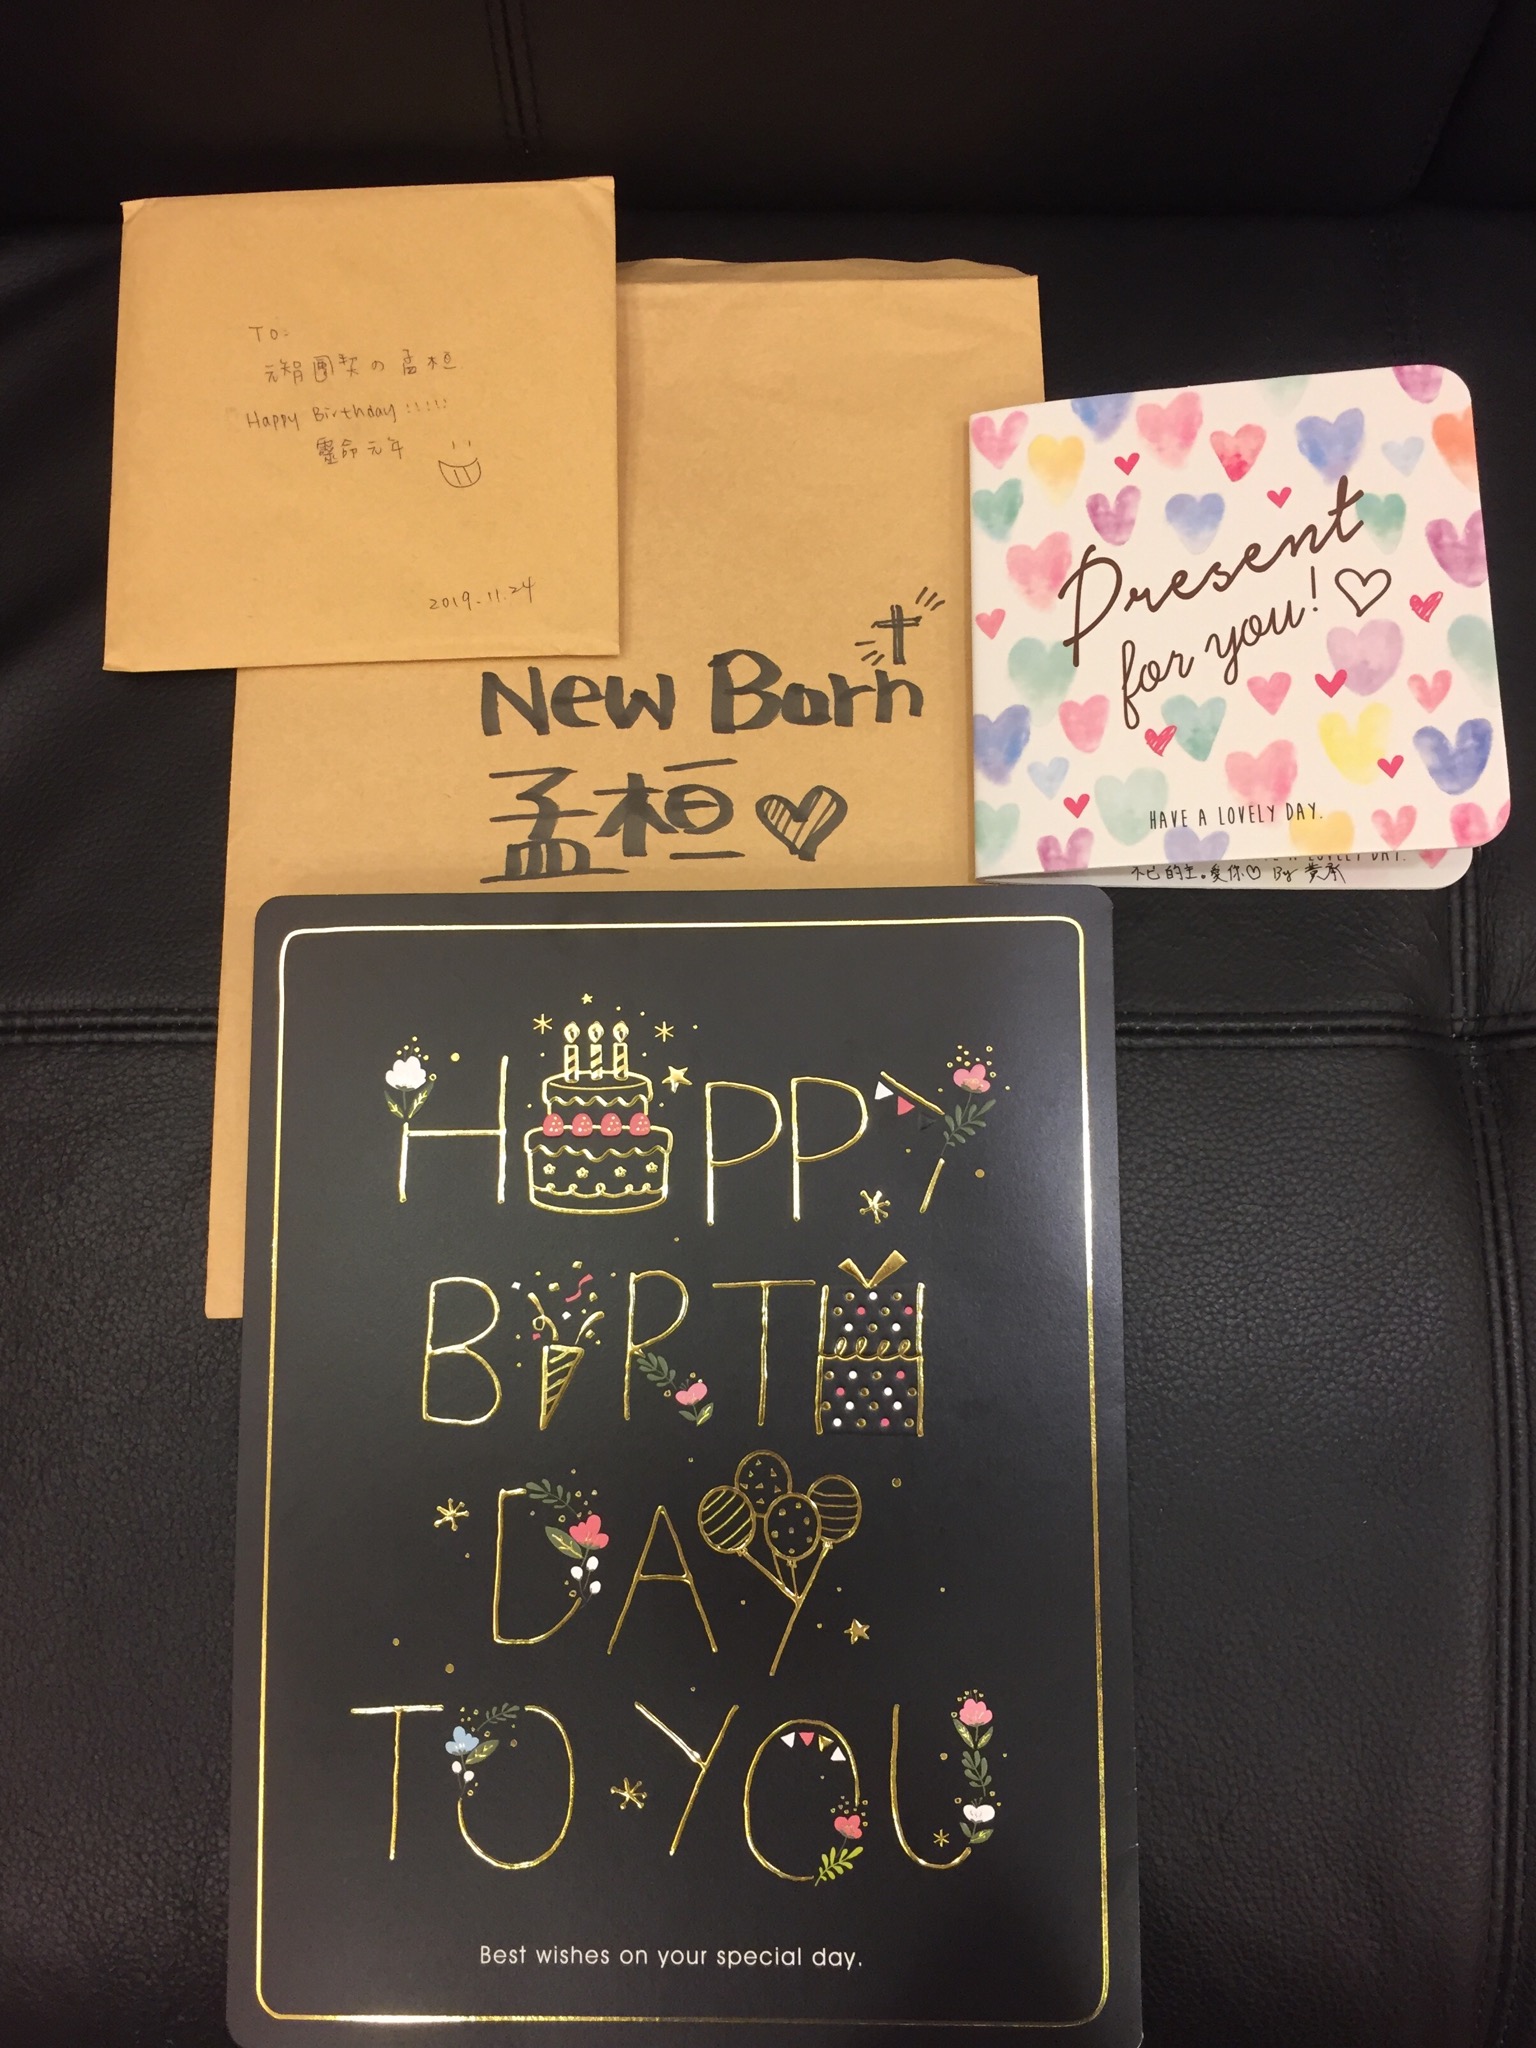 To:
元智團契の孟桓
Happy Birthday!!!!!
靈命元年
2019.11.24
New Born
孟桓
Present
for you!
HAVE A LOVELY DAY.
A LOVELY DAY.
不已的主。愛你♡ By 黃承
HAPPY
BIRTH
DAY
TO YOU
Best wishes on your special day.